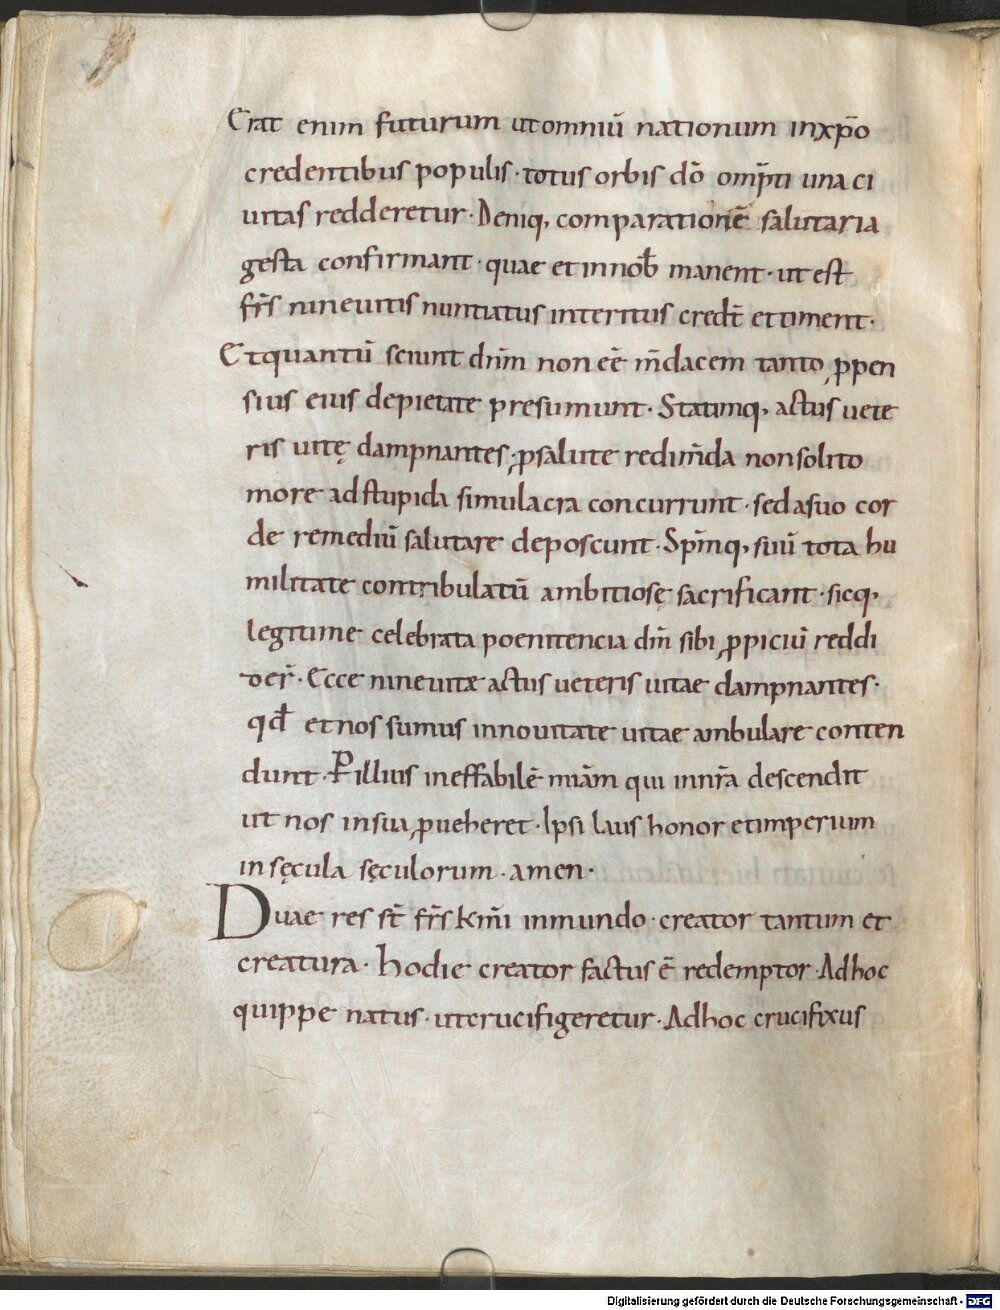 Erat enim futurum ut omniū nationum in xp̄o
credentibus populis · totus orbis dō om̄pti una ci
uitas redderetur · Deniq, comparationē salutaria
gesta confirmant · quae et in nob̄ manent · ut est
fr̄s nineuitis nuntiatus interitus credt̄ et timent ·
Et quantū sciunt dn̄m non eē m̄dacem tanto ꝓpen
sius eius de pietate presumunt · Statimq, actus uete
ris uitę dampnantes · ꝓ salute redim̄da non solito
more ad stupida simulacra concurrunt · sed a suo cor
de remediū salutare deposcunt · Spm̄q, suū tota hu
militate contribulatū ambitiosę sacrificant · sicq,
legitime celebrata poenitencia dm̄ sibi ꝓpiciū reddi
der̄ · Ecce nineuitae actus ueteris uitae dampnantes ·
qd̄ et nos sumus in nouitate uitae ambulare conten
dunt · P illius ineffabilē miām qui in nr̄a descendit
ut nos in sua ꝓueheret · Ipsi laus honor et imperium
in sęcula sęculorum · amen ·
Duae res st̄ fr̄s km̄i in mundo · creator tantum et
creatura · hodie creator factus ē redemptor · Ad hoc
quippe natus · ut crucifigeretur · Ad hoc crucifixus
Digitalisierung gefördert durch die Deutsche Forschungsgemeinschaft - DFG